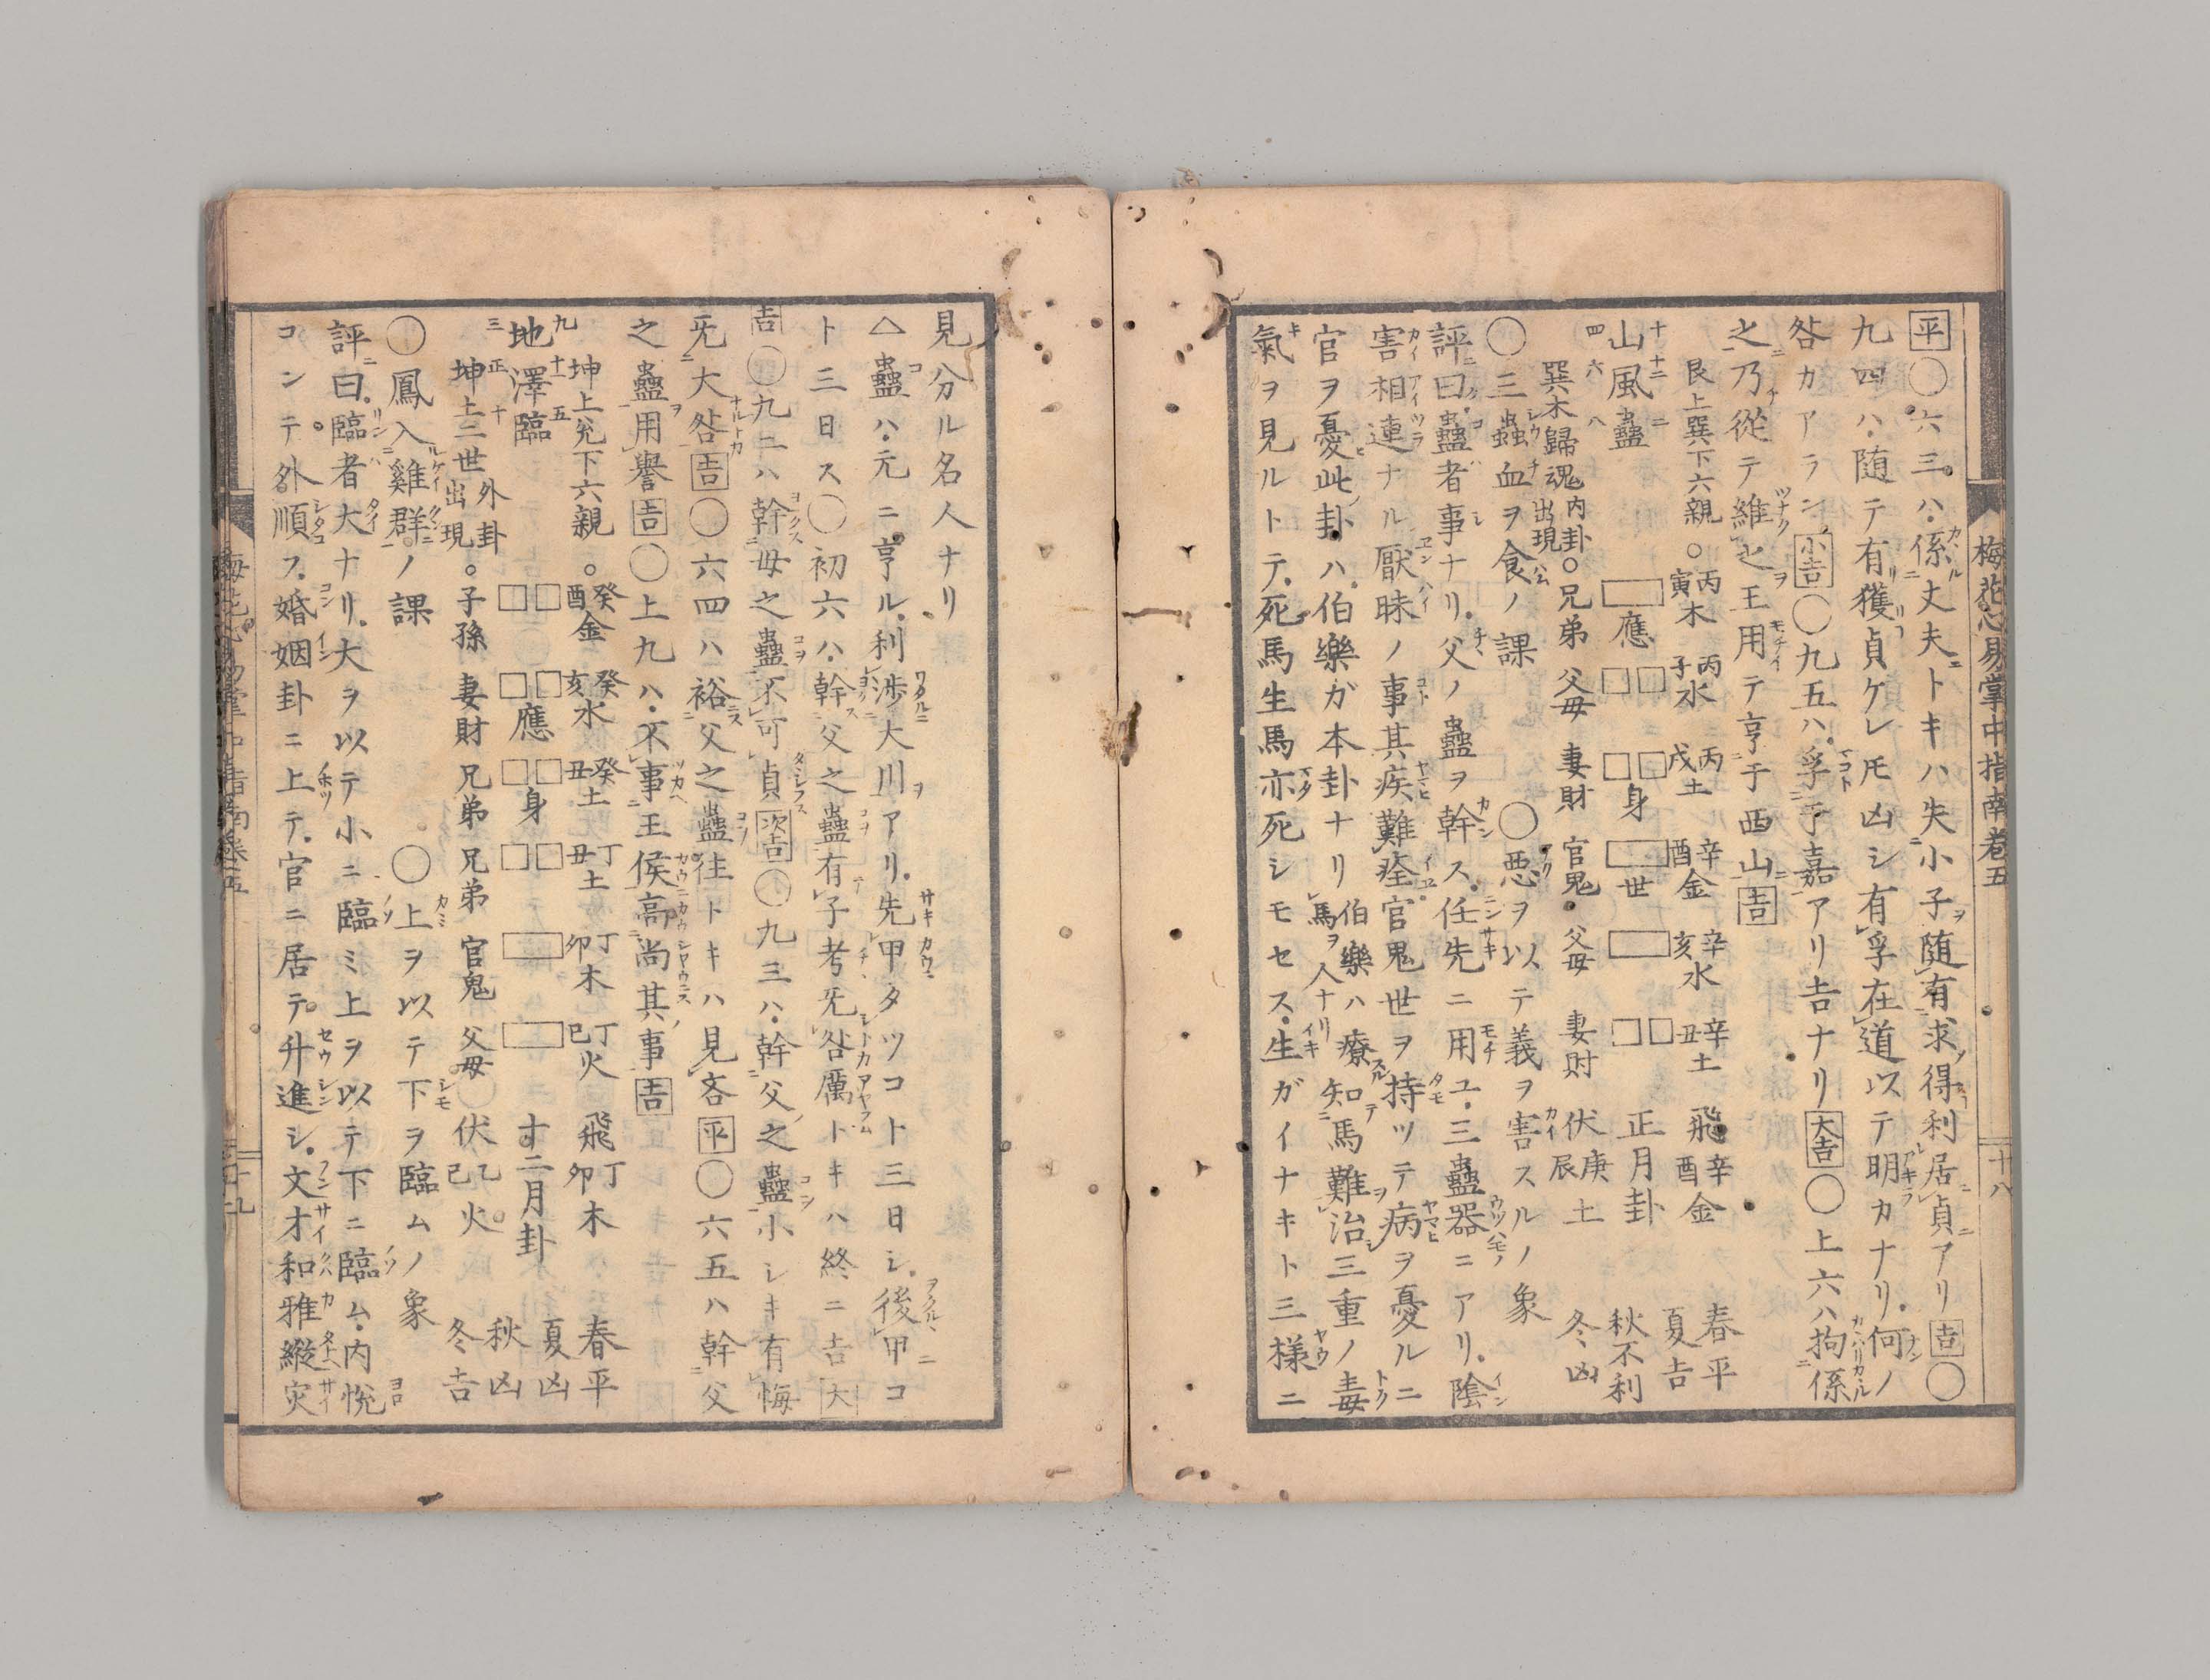 梅花心易掌中指南卷五
十八
平〇六三ハ係丈夫トキハ失小子随有求得利居貞アリ吉〇
九四ハ随テ有獲貞ケレ𪜈凶シ有孚在道以テ明カナリ何ノ
咎カアラン小吉〇九五ハ孚于嘉アリ吉ナリ大吉〇上六ハ拘係
之乃從テ維之王用テ亨于西山吉
艮上巽下六親。丙寅木 丙子水 丙戌土 辛酉金 辛亥水 辛丑土 飛辛酉金 春平
十 十二 二
山風蠱 應 身 世 正月卦 夏吉
四 六 八
巽木歸魂内卦出現〇兄弟 父母 妻財 官鬼 父母 妻財 伏庚辰土 秋不利 冬凶
〇三蟲血ヲ食ノ課 〇悪ヲ以テ義ヲ害スルノ象
評曰蠱者事ナリ父ノ蠱ヲ幹ス任先ニ用ユ三蠱器ニアリ陰
害相連ナル厭昧ノ事其疾難痊官鬼世ヲ持ツテ病ヲ憂ルニ
官ヲ憂此卦ハ伯樂ガ本卦ナリ伯樂ハ療馬ヲ人ナリ知馬難治三重ノ毒
氣ヲ見ルトテ死馬生馬亦死シモセス生ガイナキト三様ニ
見分ル名人ナリ
△蠱ハ元ニ亨ル利渉大川アリ先甲タツコト三日シ後甲コ
ト三日ス〇初六ハ幹父之蠱有子考无咎厲トキハ終ニ吉大
吉〇九二ハ幹母之蠱不可貞次吉〇九三ハ幹父之蠱小シキ有悔
无大咎吉〇六四ハ裕父之蠱往トキハ見吝平〇六五ハ幹父
之蠱用譽吉〇上九ハ不事王侯高尚其事吉
坤上兊下六親。癸酉金 癸亥水 癸丑土 丁丑土 丁卯木 丁巳火 飛丁卯木 春平
九 十一 五
地澤臨 應 身 十二月卦 夏凶
三 正 十
坤土二世外卦出現。子孫 妻財 兄弟 兄弟 官鬼 父母 伏乙巳火 秋凶 冬吉
〇鳳入雞群ノ課 〇上ヲ以テ下ヲ臨ムノ象
評曰臨者大ナリ大ヲ以テ小ニ臨ミ上ヲ以テ下ニ臨ム内悦
コンテ外順フ婚姻卦ニ上テ官ニ居テ升進シ文才和雅縱灾
十九